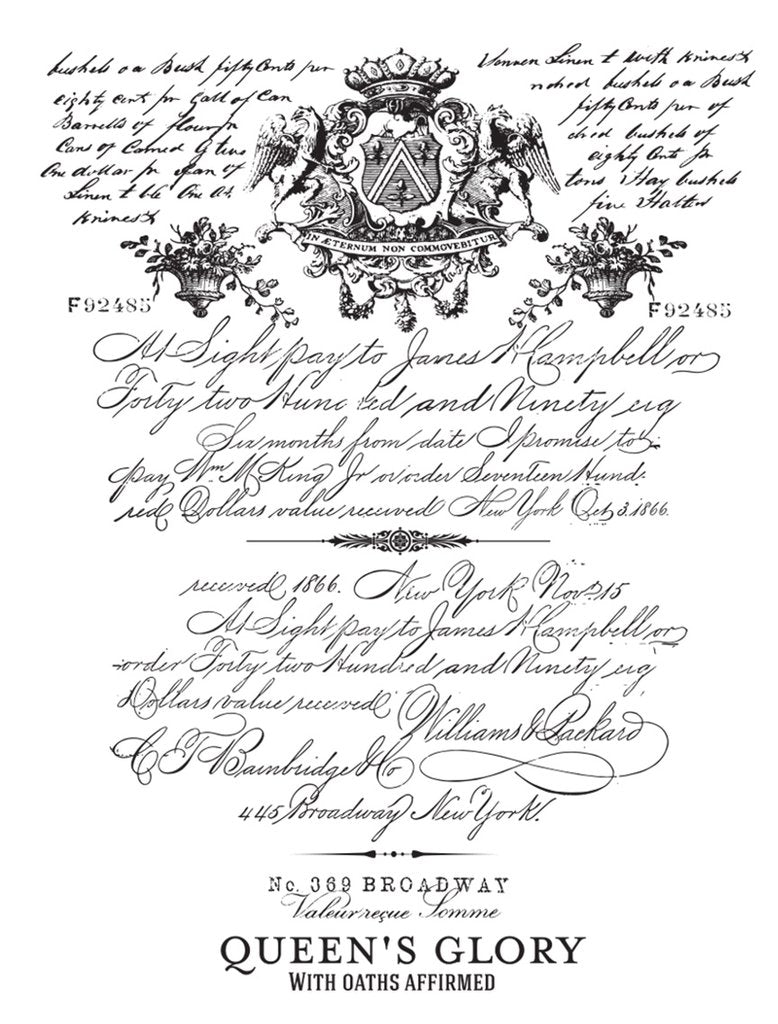 bushels oa Bush fifty Cents per
eighty cent pr Gall of Can
Barrells of flour pr
Cans of
One dollar pr of
Linen t ble One At
Knives &
Linen t with Knives &
bushels oa Bush
fifty Cents per of
bushels of
eighty Cents pr
tons Hay bushels
five
IN ÆTERNUM NON COMMOVEBITUR
F92485
F92485
At Sight pay to James H Campbell or
Forty two Hundred and Ninety eig
Six months from date I promise to
pay Wm M King Jr or order Seventeen Hund
red Dollars value received New York Oct 3. 1866.
received 1866. New York Nov. 15
At Sight pay to James H Campbell or
order Forty two Hundred and Ninety eig
Dollars value received
Williams & Packard
C T Bainbridge & Co
445 Broadway New York.
No. 369 BROADWAY
Valeur reçue Somme
QUEEN'S GLORY
WITH OATHS AFFIRMED